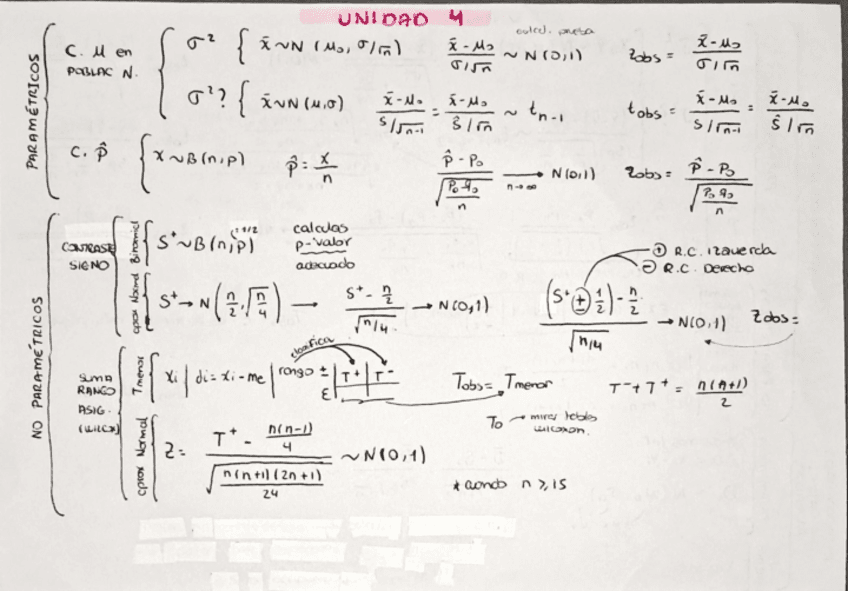 UNIDAD 4
PARAMÉTRICOS
C. μ en POBLAC N.
σ² { x̄ ~ N (μ₀, σ/√n)   (x̄ - μ₀)/(σ/√n) ~ N(0,1)   estad. prueba   Zobs = (x̄ - μ₀)/(σ/√n)
σ²? { x̄ ~ N (μ, σ)   (x̄ - μ₀)/(S/√n-1) = (x̄ - μ₀)/(Ŝ/√n) ~ t n-1   tobs = (x̄ - μ₀)/(S/√n-1) = (x̄ - μ₀)/(Ŝ/√n)
C. p̂ { x ~ B(n,p)   p̂ = x/n   (p̂ - p₀)/√(p₀ q₀/n) → n→∞ N(0,1)   Zobs = (p̂ - p₀)/√(p₀ q₀/n)
NO PARAMÉTRICOS
CONTRASTE SIGNO
Binomial
S⁺ ~ B(n,p) 1/2   calculas p-valor adecuado
aprox Normal
S⁺ → N(n/2, √(n/4)) → (S⁺ - n/2)/√(n/4) → N(0,1)   ((S⁺ ± 1/2) - n/2)/√(n/4) → N(0,1)   Zobs =
⊕ R.C. Izquierda
⊖ R.C. Derecho
SUMA RANGO ASIG. (WILCX)
Tmenor
xi | di = xi - me | rango ± | T⁺ | T⁻   clasifica   Σ   Tobs = Tmenor   T⁻ + T⁺ = n(n+1)/2
To → mirar tablas wilcoxon.
aprox Normal
Z = (T⁺ - n(n-1)/4)/√(n(n+1)(2n+1)/24) ~ N(0,1)   * cuando n ≥ 15